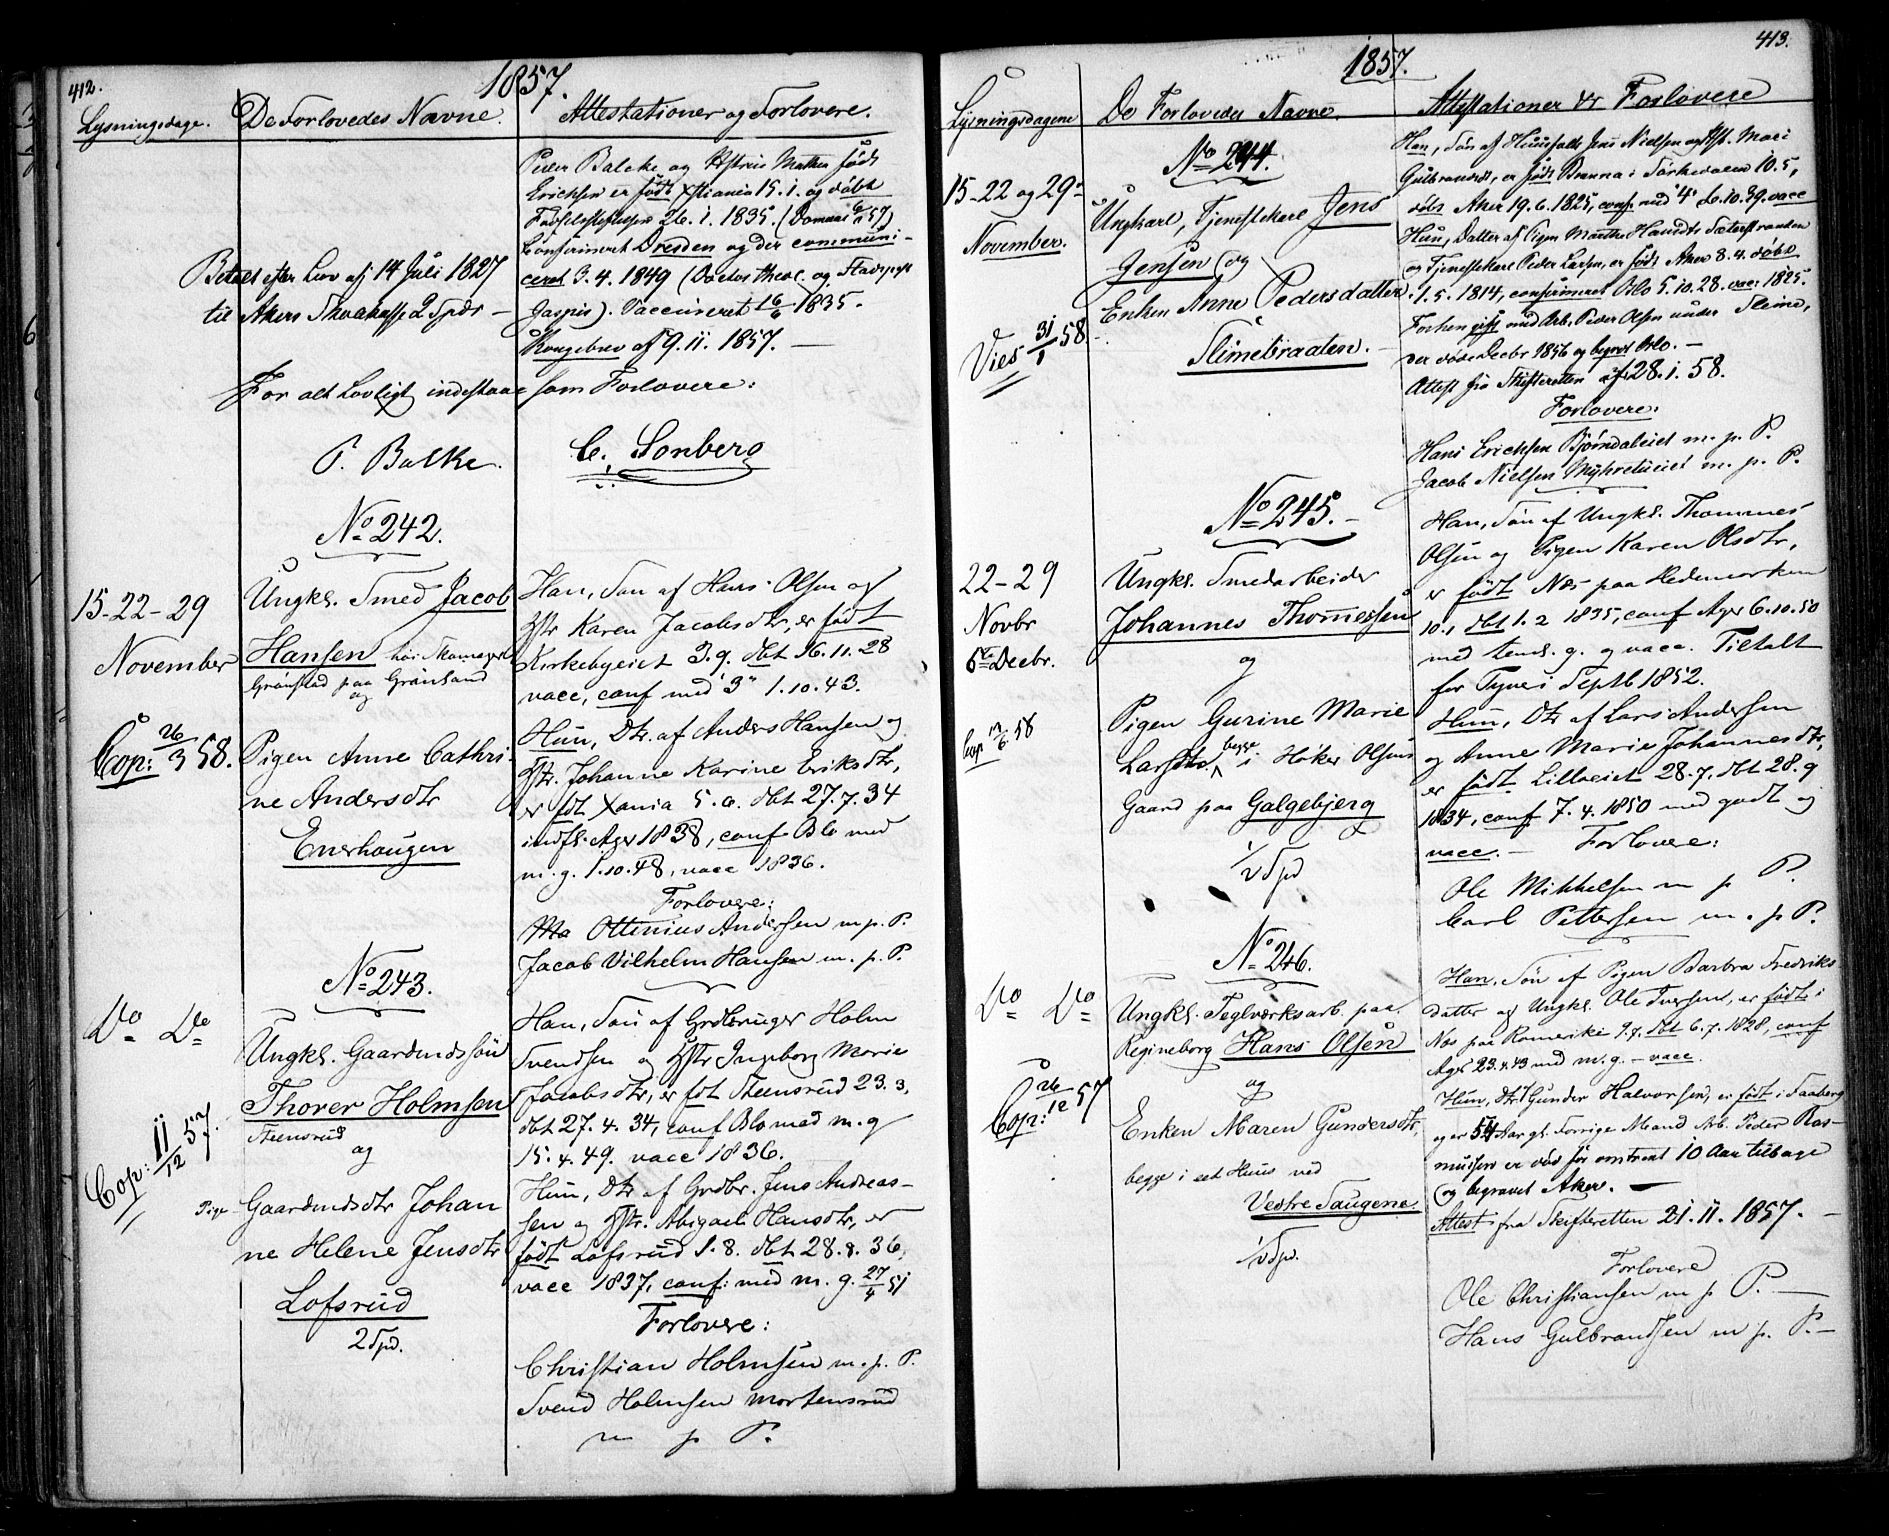 412.
1857.
Lysningsdage.
De Forlovedes Navne.
Attestationer og Forlovere.
Peder Balcke og Hstrue Mathea født
Erichsen er født Xstiania 15.1. og døbt
Fødselsstiftelsen 26.1.1835. (Domaas 57)
Confirmeret Dresden og der communi-
ceret 3.4.1849 (Doctor theol. og Stadspræst
Jaspis). Vaccineret 16/6 1835.
Kongebrev af 9.11.1857. —
Betalt efter Lov af 14 Juli 1827
til Akers Skolekasse 2 Spdr —
For alt Lovligt indestaae som Forlovere:
P. Balke.
C. Sonberg
No 242.
15-22-29
November
Cop: 26/3 58.
Ungkl. Smed Jacob
Hansen hos Skomager
Grønstad paa Grønland
og
Pigen Anne Cathri-
ne Andersdtr
Enerhaugen
Han, Søn af Hans Olsen og
Hstr Karen Jacobsdtr, er født
Kirkebyeiet 3.9. dbt 16.11.28
vacc, conf med "3" 1.10.43.
Hun, Dtr. af Anders Hansen og
Hstr. Johanne Karine Eriksdtr,
er fdt Xania 5.6. dbt 27.7.34
indfl. Ager 1838, conf Oslo med
m.g. 1.10.48, vacc 1836.
Forlovere:
Ma Ottinius Andersen m.p.P.
Jacob Vilhelm Hansen m.p.P.
No 243.
Do Do
Cop: 11/12 57.
Ungkl. Gaardmdssøn
Thorer Holmsen
Steensrud
og
Pige Gaardmdsdtr Johan
ne Helene Jensdtr
Lofsrud
2 Spd.
Han, Søn af Grdbruger Holm
Svendsen og Hstr Ingeborg Marie
Jacobsdtr, er fdt Steensrud 23.3.
dbt 27.4.34, conf Oslo med m.g
15.4.49. vacc 1836.
Hun, Dtr af Grdbr. Jens Andreas-
sen og Hstr. Abigael Hansdtr, er
født Lofsrud 1.8. dbt 28.8.36,
vacc 1837, conf: med m.g. 27/4 51
Forlovere:
Christian Holmsen m.p.P.
Svend Holmsen Mortensrud
m p P.
413.
1857.
Lysningsdagene
De Forlovedes Navne.
Attestationer & Forlovere
No 244.
15-22 og 29
November.
Vies 31/1 58
Ungkarl, Tjenestekarl Jens
Jensen og
Enken Anne Pedersdatter
Slimebraaten.
Han, Søn af Huusfolk Jens Nielsen og Hst. Mari
Gulbransdt, er født Brenna i Sørkedalen 10.5,
døbt Aker 19.6.1825, conf med "4" d. 6.10.39. vacc
Hun, Datter af Pigen Marthe Hansdtr Sæterstranden
og Tjenestekarl Peder Larsen, er født Aker 8.4. døbt
1.5.1814, confirmeret Oslo 5.10.28. vacc: 1825.
Forhen gift med Arb. Peder Olsen under Slime,
der døde Decbr 1856 og begrvt Oslo. —
Attest fra Skifteretten af 28.1.58.
Forlovere:
Hans Erichsen Bjørndaleiet m.p.P.
Jacob Nielsen Myhretueiet m.p.P.
No 245.—
22-29
Novbr
6te Decbr.
Cop 58
Ungkl. Smedarbeider
Johannes Thomessen
og
Pigen Gurine Marie
Larsdtr. begge i Høker Olsens
Gaard paa Galgebjerg
1/2 Spd
Han, Søn af Ungkl. Thommes
Olsen og Pigen Karen Olsdtr,
er født Næs paa Hedemarken
10.1 dbt 1.2 1835, conf Ager 6.10.50
med temd. g. og vacc. Tiltalt
for Tyveri Septb 1852.
Hun, Dtr af Lars Andersen
og Anne Marie Johannesdtr,
er født Lilleeiet 28.7. dbt 28.9
1834, conf 7.4.1850 med godt og
vacc. — Forlovere:
Ole Mikkelsen m p P.
Carl Pettersen m.p P.
No 246.
Do Do
Cop: 26/12 57
Ungkl. Teglværksarb. paa
Regineborg Hans Olsen
og
Enken Maren Gundersdtr,
begge i eet Huus ved
Vestre Saugene.
1/2 Spd.
Han, Søn af Pigen Barbra Fredriks-
datter og Ungkl. Ole Iversen, er født i
Næs paa Romerike 9.7. dbt 6.7.1828, conf
Ager 23.4.43 med m.g. — vacc.
Hun, dtr Gunder Halvorsen, er født i Faaberg
og er 54 Aar gl. Forrige Mand Arb. Peder Ras-
mussen er død for omtrent 10 Aar tilbage
og begravet Aker. —
Attest fra Skifteretten 21.11.1857. —
Forlovere
Ole Christiansen m p P. —
Hans Gulbrandsen m p. P. —